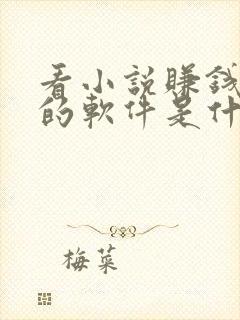 看小説賺錢
的軟件是什
梅菜